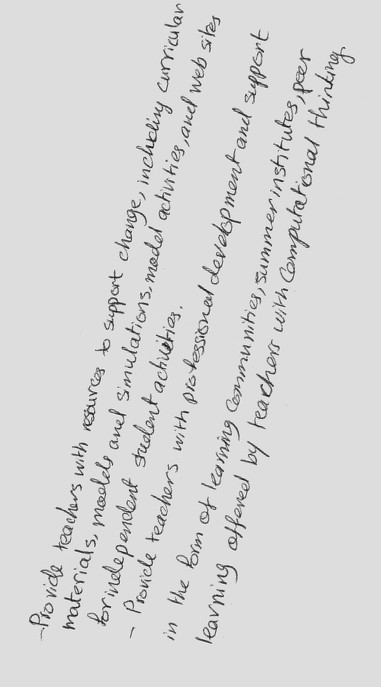 - Provide teachers with resources to support change, including curricular
materials, models and simulations, model activities, and web sites
for independent student activities.
- Provide teachers with professional development and support
in the form of learning communities, summer institutes, peer
learning offered by teachers with Computational thinking